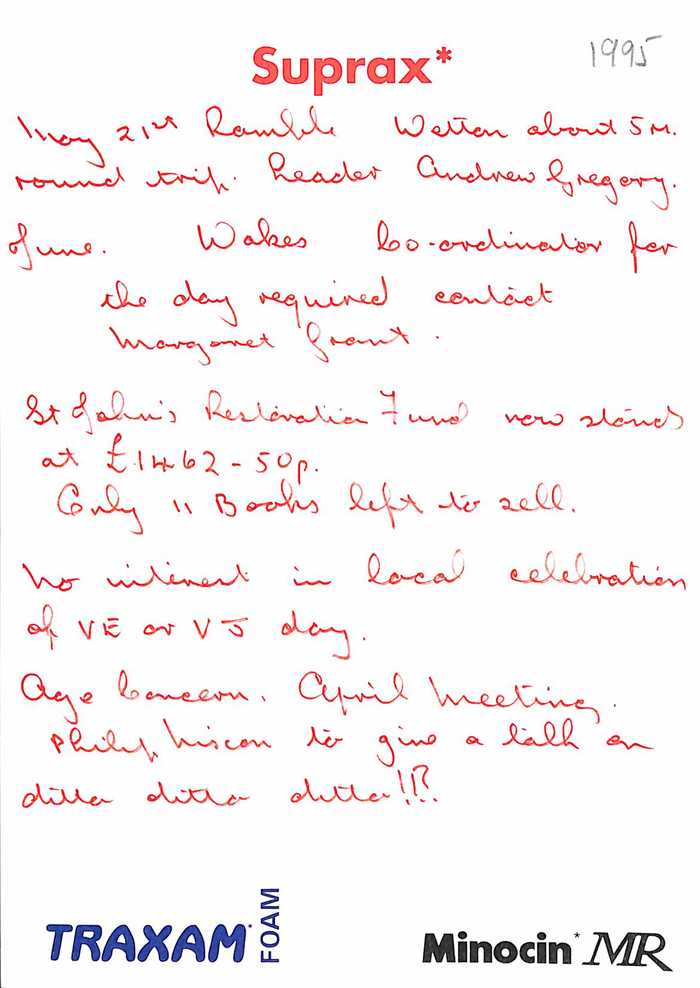 Suprax*
1995
May 21st Ramble Wetton about 5 M.
round trip. Leader Andrew Gregory.
June. Wakes Co-ordinator for
the day required contact
Margaret Grant.
St John's Restoration Fund now stands
at £1462-50p.
Only 11 Books left to sell.
No interest in local celebration
of VE or VJ day.
Age Concern. April Meeting.
Philip to give a talk on
ditto ditto ditto!!?
TRAXAM FOAM
Minocin* MR